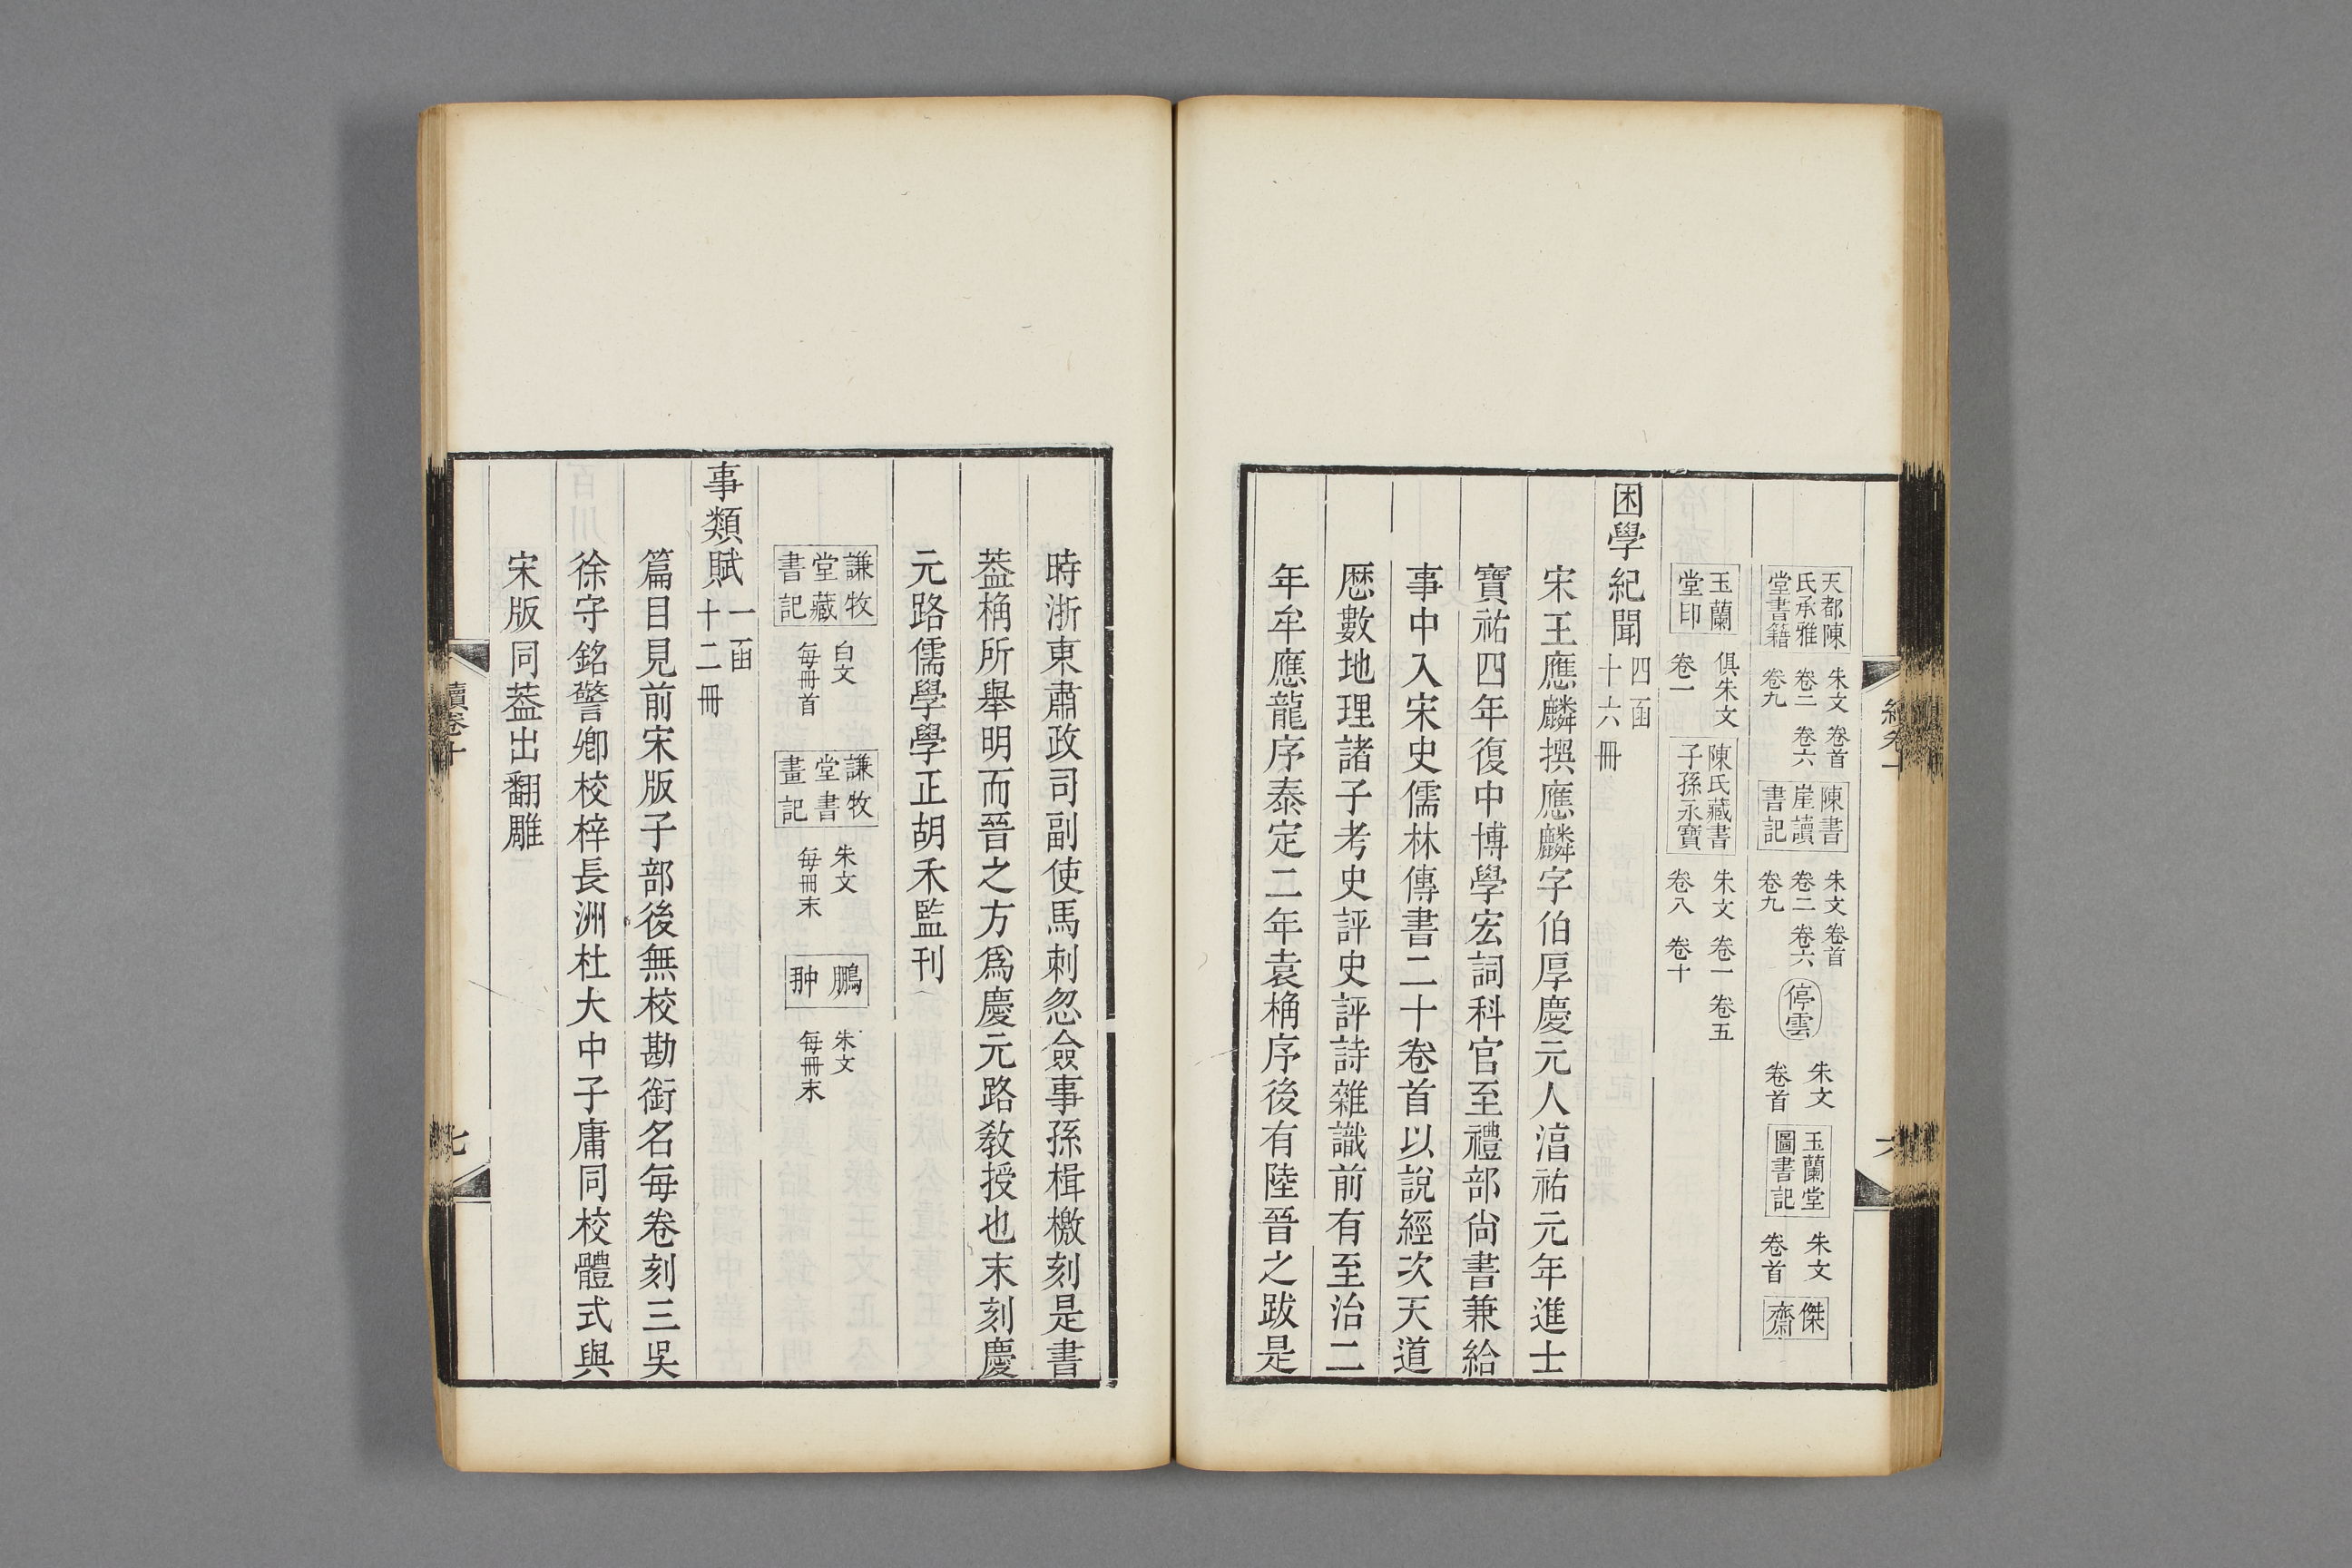 天都陳氏承雅堂書籍 朱文 卷首 卷二 卷六 卷九 陳書崖讀書記 朱文 卷首 卷二 卷六 卷九 停雲 朱文 卷首 玉蘭堂圖書記 朱文 卷首 傑齋
玉蘭堂印 俱朱文 卷一 陳氏藏書子孫永寶 朱文 卷一 卷五 卷八 卷十
困學紀聞 四函 十六冊
宋王應麟撰應麟字伯厚慶元人湻祐元年進士
寶祐四年復中博學宏詞科官至禮部尙書兼給
事中入宋史儒林傳書二十卷首以說經次天道
厯數地理諸子考史評史評詩雜識前有至治二
年牟應龍序泰定二年袁桷序後有陸晉之跋是
時浙東肅政司副使馬刺忽僉事孫楫檄刻是書
葢桷所舉明而晉之方爲慶元路敎授也末刻慶
元路儒學學正胡禾監刊
謙牧堂藏書記 白文 每冊首 謙牧堂書畫記 朱文 每冊末 鵬翀 朱文 每冊末
事類賦 一函 十二冊
篇目見前宋版子部後無校勘銜名每卷刻三吳
徐守銘警卿校梓長洲杜大中子庸同校體式與
宋版同葢出翻雕
續卷十
七
六